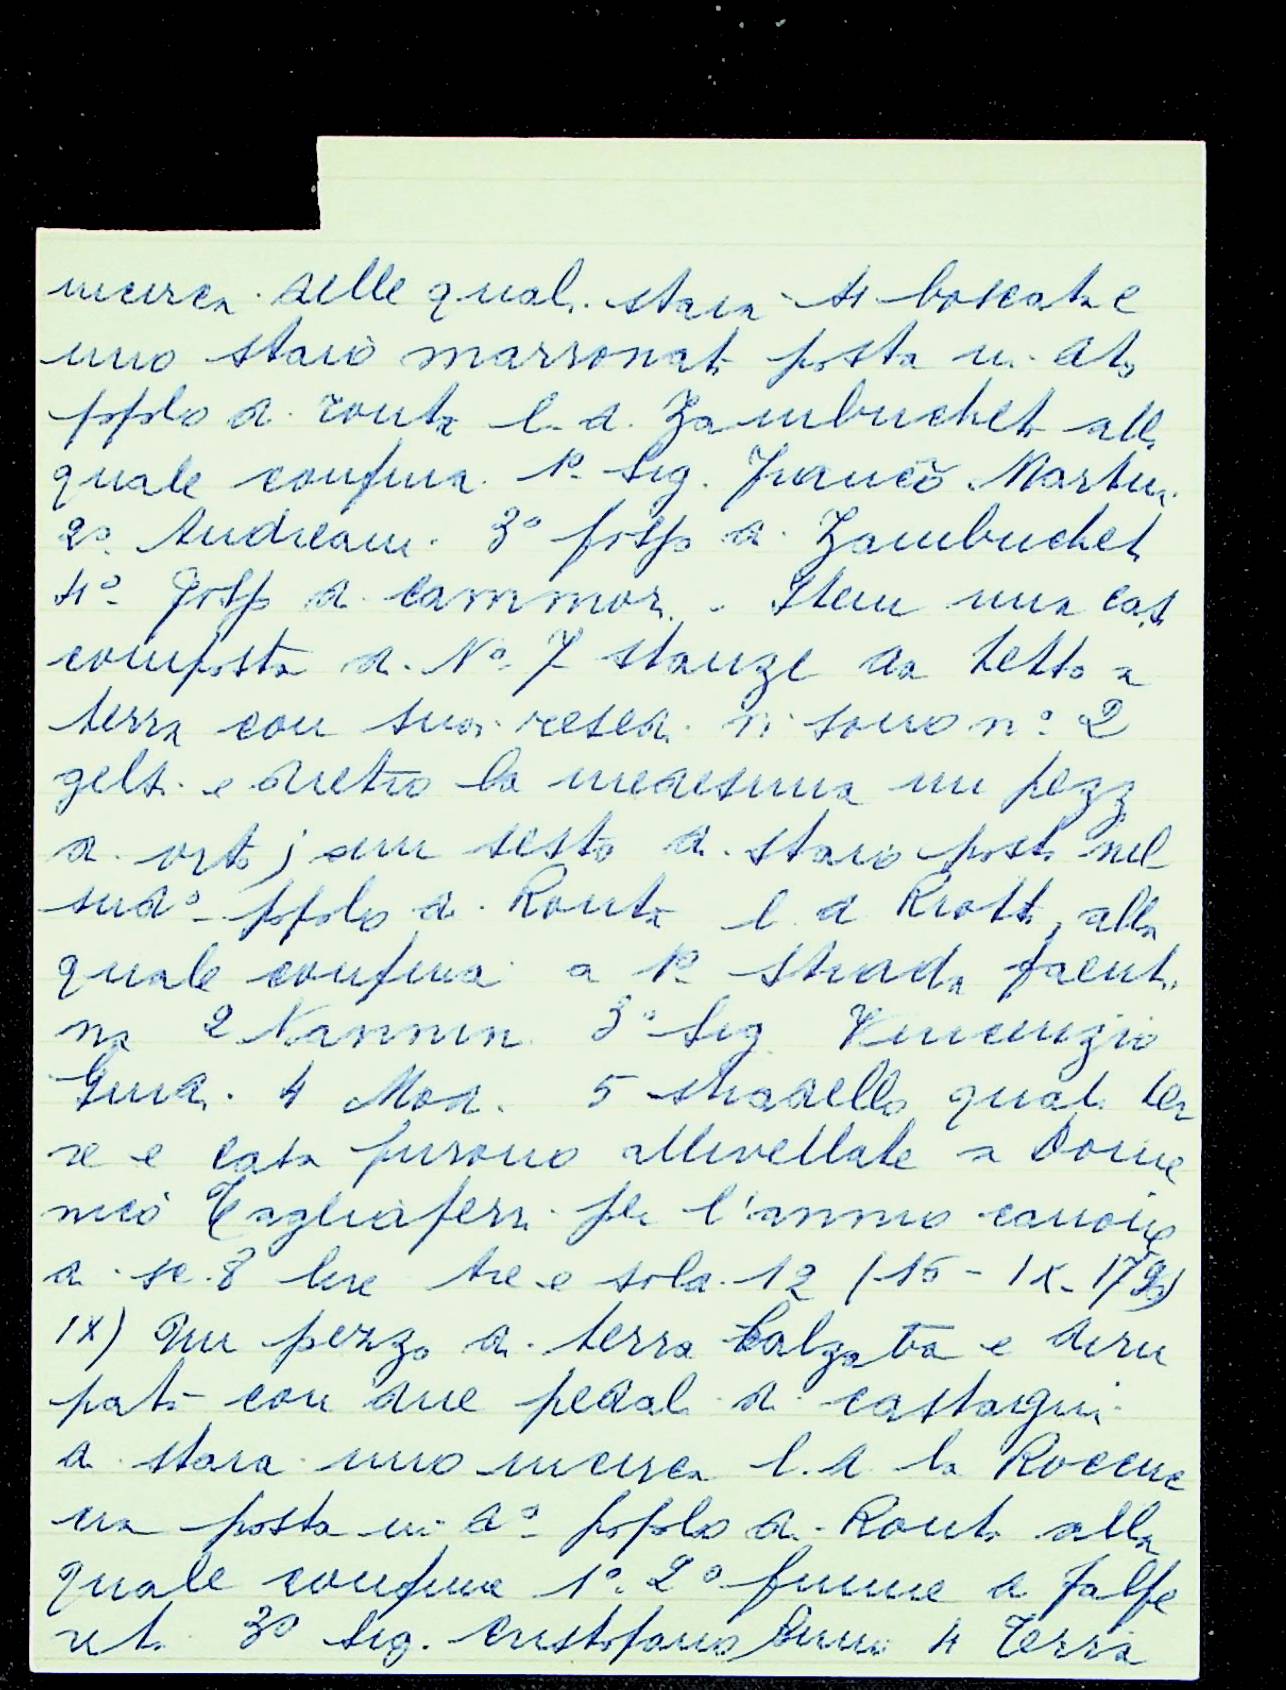 incirca delle quali staia 4 boscate e
uno staio marronati posta in dto
popolo di Ronta l.d. Zambucheti alla
quale confina 1º Sig. Franco Martini
2º Andreani 3º fosso di Zambucheti
4º fosso di Cammori. Item una casa
composta di Nº 7 stanze da tetto a
terra con suoi resedi vi sono nº 2
gelsi e dietro la medesima un pezzo
di orto di un sesto di staio posti nel
sudº popolo di Ronta l.d. Riotti, alla
quale confina a 1º strada faenti
na 2 Nannini 3º Sig. Vincenzio
4 5 stradello quali ter
re e casa furono allivellate a Dome
nico Tagliaferri per l'annuo canone
di sc. 8 lire tre e soldi 12
IX) Un pezzo di terra balzata e diru
pata con due pedali di castagni
di staia uno incirca l.d. la
na posta in dº popolo di Ronta alla
quale confina 1º 2º fiume di Falfe
reto 3º Sig. Cristofano 4 Terra